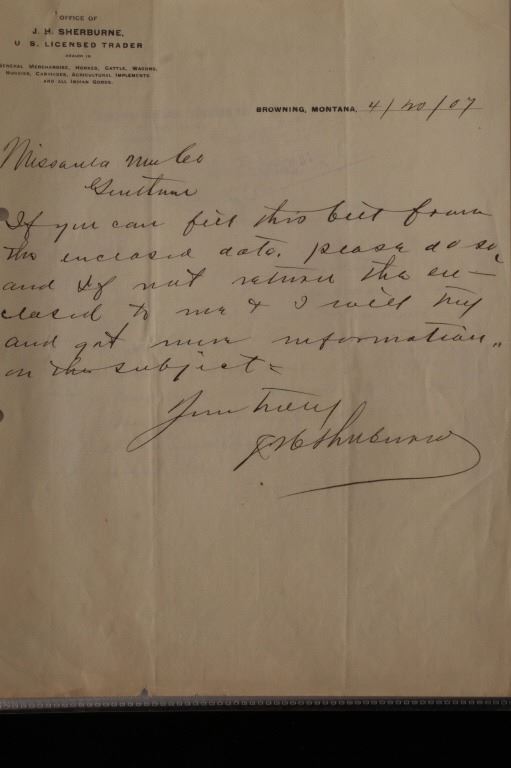 OFFICE OF
J. H. SHERBURNE,
U. S. LICENSED TRADER
DEALER IN
GENERAL MERCHANDISE, HORSES, CATTLE, WAGONS,
BUGGIES, CARRIAGES, AGRICULTURAL IMPLEMENTS
AND ALL INDIAN GOODS.
BROWNING, MONTANA, 4/20/07
Missoula Mer Co
Gentlemen
If you can fill this bill from
the enclosed data, please do so,
and if not return the en-
closed to me & I will try
and get more information
on the subject
Yours truly
J H Sherburne